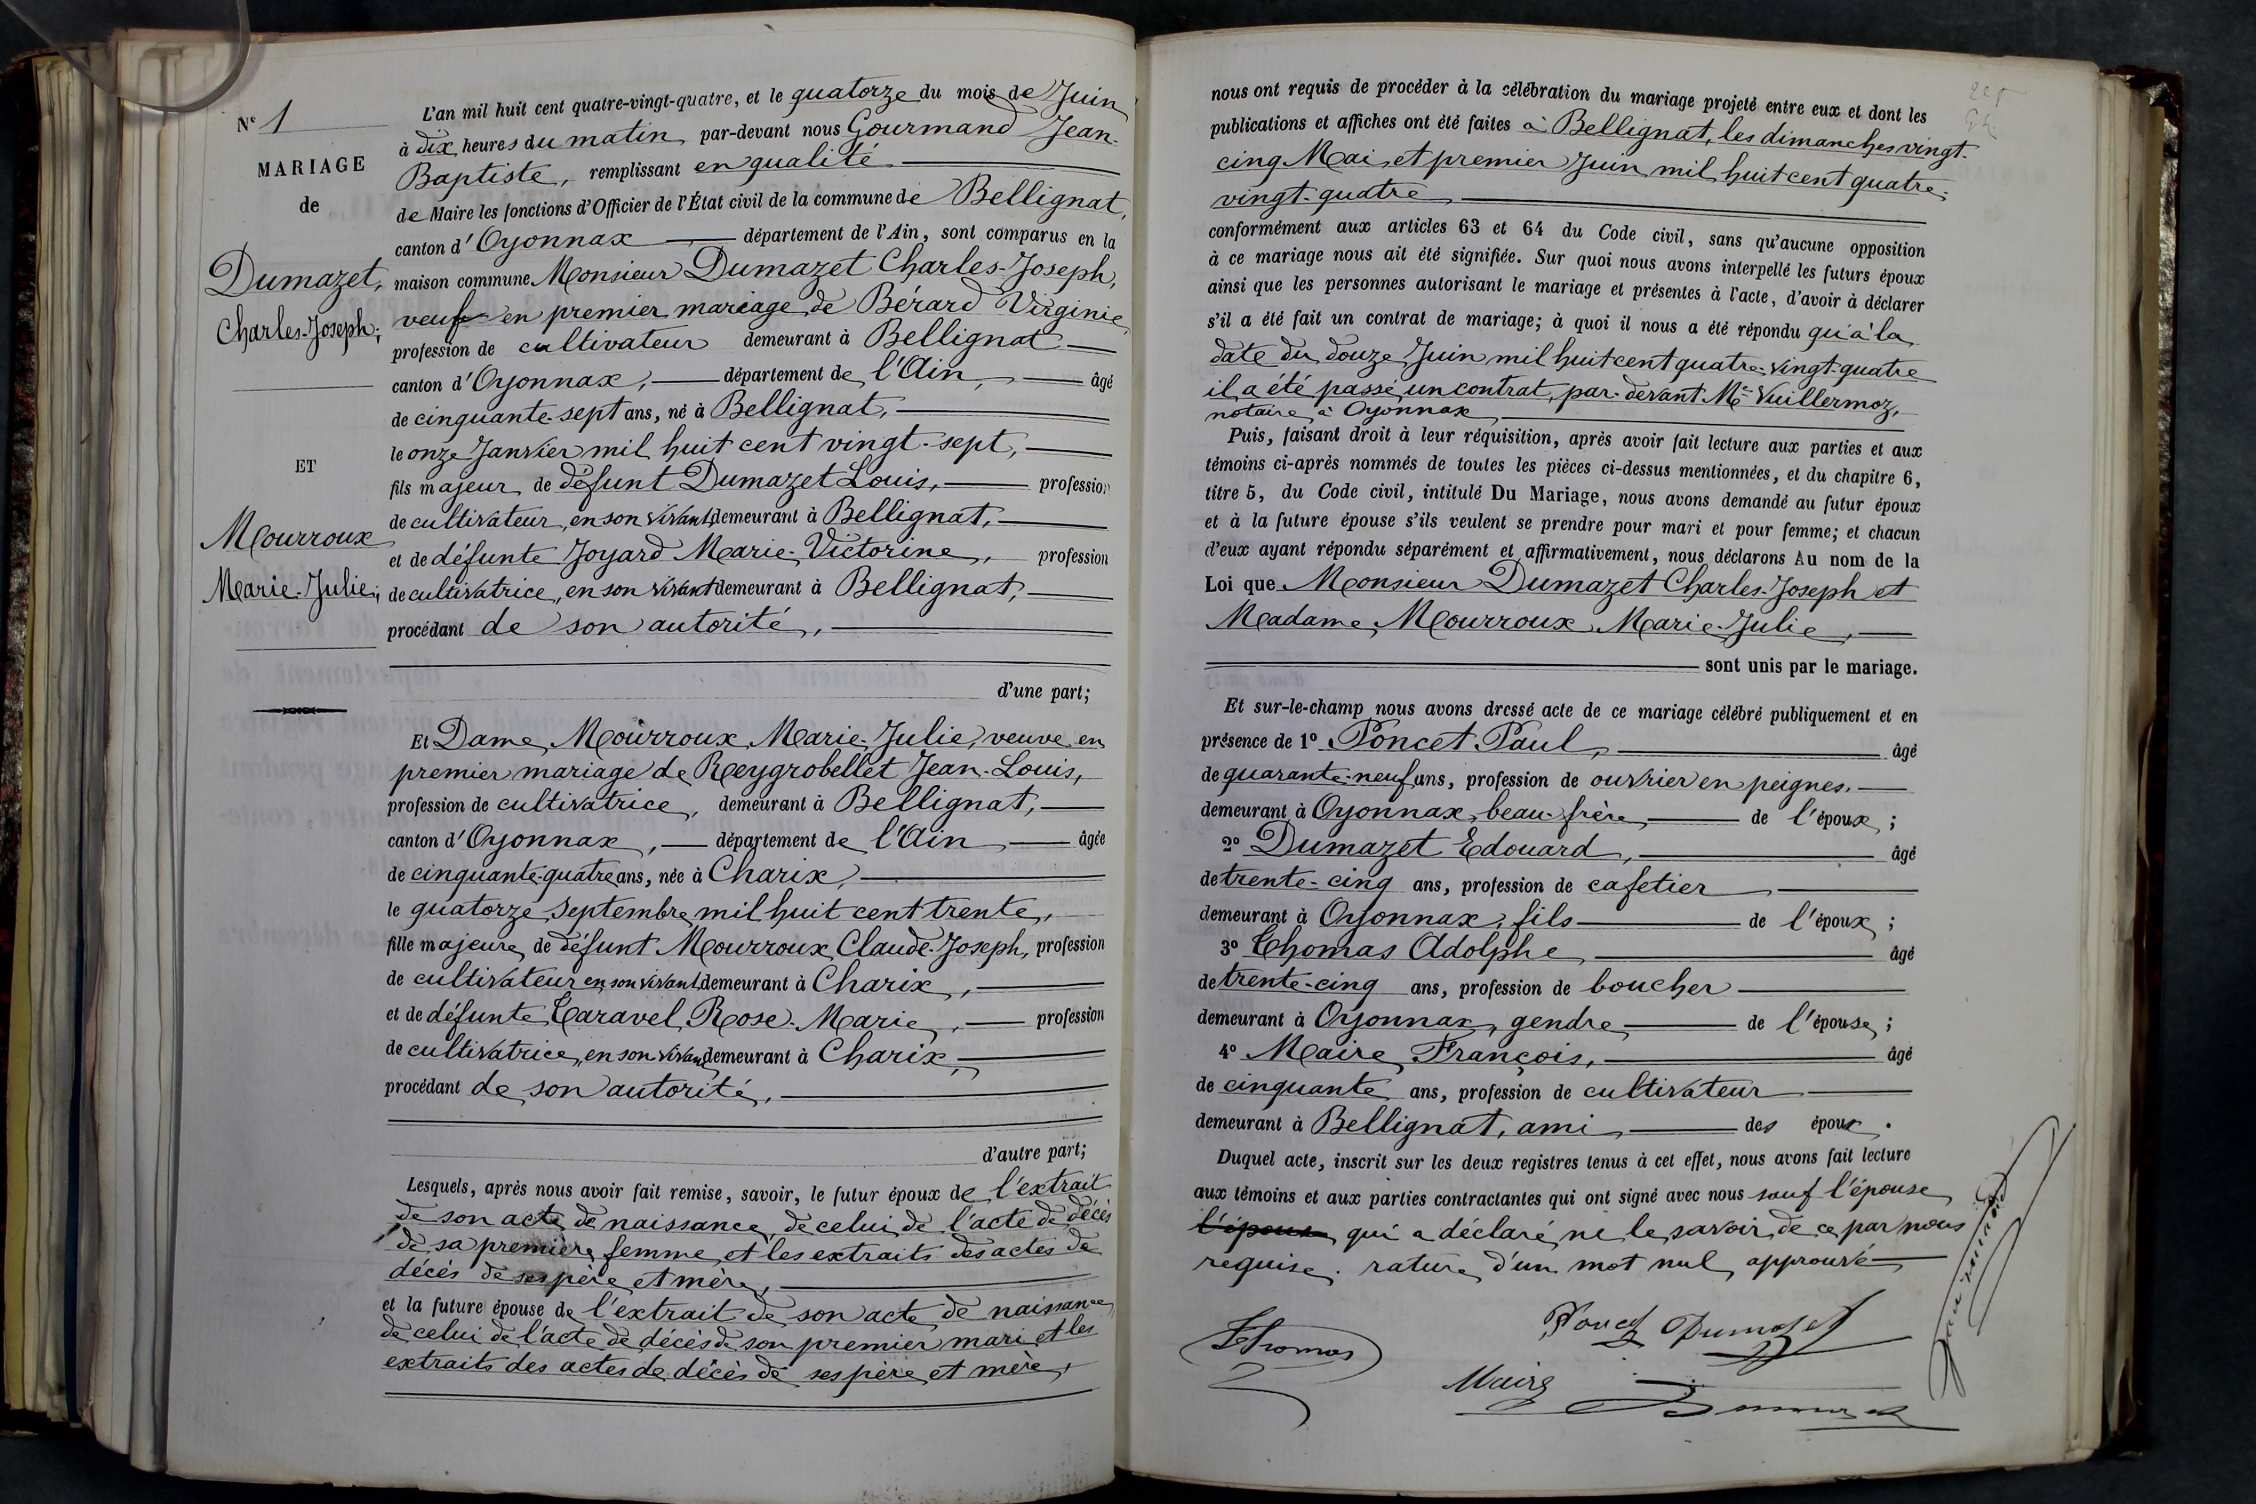 Nº 1
MARIAGE
de
Dumazet,
Charles-Joseph;
ET
Mourroux
Marie-Julie;
L'an mil huit cent quatre-vingt-quatre, et le quatorze du mois de Juin
à dix heures du matin par-devant nous Gourmand Jean-
Baptiste, remplissant en qualité
de Maire les fonctions d'Officier de l'État civil de la commune de Bellignat,
canton d'Oyonnax département de l'Ain, sont comparus en la
maison commune Monsieur Dumazet Charles-Joseph,
veuf en premier mariage de Bérard Virginie
profession de cultivateur demeurant à Bellignat
canton d'Oyonnax, département de l'Ain, âgé
de cinquante-sept ans, né à Bellignat,
le onze Janvier mil huit cent vingt-sept,
fils majeur de défunt Dumazet Louis, profession
de cultivateur, en son vivant, demeurant à Bellignat,
et de défunte Joyard Marie-Victorine, profession
de cultivatrice, en son vivant demeurant à Bellignat,
procédant de son autorité,
d'une part;
Et Dame Mourroux Marie-Julie, veuve en
premier mariage de Reygrobellet Jean-Louis,
profession de cultivatrice, demeurant à Bellignat,
canton d'Oyonnax, département de l'Ain âgée
de cinquante-quatre ans, née à Charix,
le quatorze Septembre mil huit cent trente,
fille majeure de défunt Mourroux Claude-Joseph, profession
de cultivateur en son vivant, demeurant à Charix,
et de défunte Caravel Rose-Marie, profession
de cultivatrice, en son vivant demeurant à Charix,
procédant de son autorité,
d'autre part;
Lesquels, après nous avoir fait remise, savoir, le futur époux de l'extrait
de son acte de naissance, de celui de l'acte de décès
de sa première femme et les extraits des actes de
décès de ses père et mère,
et la future épouse de l'extrait de son acte de naissance,
de celui de l'acte de décès de son premier mari et les
extraits des actes de décès de ses père et mère,
nous ont requis de procéder à la célébration du mariage projeté entre eux et dont les
publications et affiches ont été faites à Bellignat, les dimanches vingt-
cinq Mai et premier Juin mil huit cent quatre-
vingt-quatre
conformément aux articles 63 et 64 du Code civil, sans qu'aucune opposition
à ce mariage nous ait été signifiée. Sur quoi nous avons interpellé les futurs époux
ainsi que les personnes autorisant le mariage et présentes à l'acte, d'avoir à déclarer
s'il a été fait un contrat de mariage; à quoi il nous a été répondu qu'à la
date du douze Juin mil huit cent quatre-vingt-quatre
il a été passé un contrat par-devant Me Vuillermoz,
notaire à Oyonnax
Puis, faisant droit à leur réquisition, après avoir fait lecture aux parties et aux
témoins ci-après nommés de toutes les pièces ci-dessus mentionnées, et du chapitre 6,
titre 5, du Code civil, intitulé Du Mariage, nous avons demandé au futur époux
et à la future épouse s'ils veulent se prendre pour mari et pour femme; et chacun
d'eux ayant répondu séparément et affirmativement, nous déclarons Au nom de la
Loi que Monsieur Dumazet Charles-Joseph et
Madame Mourroux Marie-Julie,
sont unis par le mariage.
Et sur-le-champ nous avons dressé acte de ce mariage célébré publiquement et en
présence de 1º Poncet Paul, âgé
de quarante-neuf ans, profession de ouvrier en peignes,
demeurant à Oyonnax, beau-frère de l'époux;
2º Dumazet Edouard, âgé
de trente-cinq ans, profession de cafetier
demeurant à Oyonnax, fils de l'époux;
3º Thomas Adolphe âgé
de trente-cinq ans, profession de boucher
demeurant à Oyonnax, gendre de l'épouse;
4º Maire François, âgé
de cinquante ans, profession de cultivateur
demeurant à Bellignat, ami des époux.
Duquel acte, inscrit sur les deux registres tenus à cet effet, nous avons fait lecture
aux témoins et aux parties contractantes qui ont signé avec nous sauf l'épouse
l'époux qui a déclaré ne le savoir de ce par nous
requise. rature d'un mot nul approuvé
Poncet Dumazet
Thomas
Maire
Dumazet
Gourmand